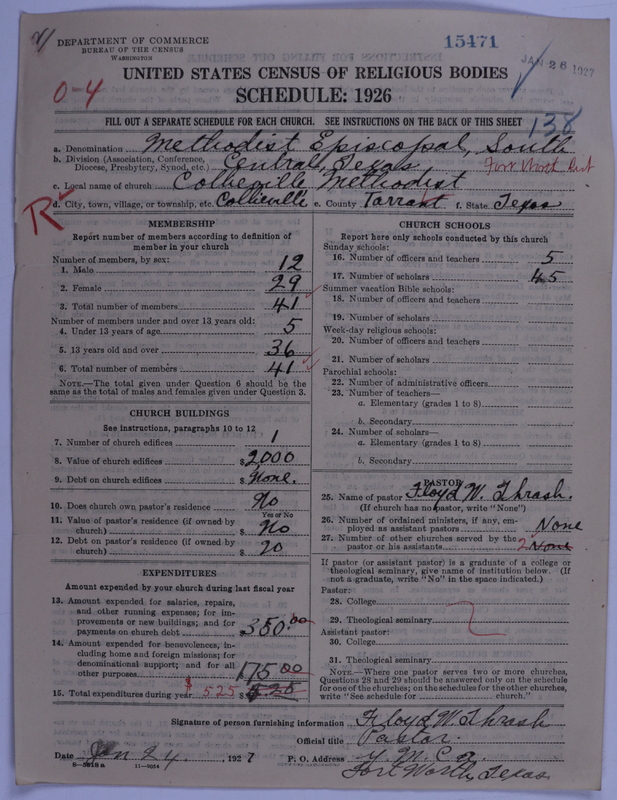 DEPARTMENT OF COMMERCE
BUREAU OF THE CENSUS
WASHINGTON
15471
JAN 26 1927
04
UNITED STATES CENSUS OF RELIGIOUS BODIES
SCHEDULE: 1926
FILL OUT A SEPARATE SCHEDULE FOR EACH CHURCH. SEE INSTRUCTIONS ON THE BACK OF THIS SHEET
138
a. Denomination Methodist Episcopal, South
b. Division (Association, Conference, Diocese, Presbytery, Synod, etc.) Central, Texas Fort Worth Dist
c. Local name of church Collieville Methodist
R
d. City, town, village, or township, etc. Collieville e. County Tarrant f. State Texas
MEMBERSHIP
Report number of members according to definition of
member in your church
Number of members, by sex:
1. Male 12
2. Female 29
3. Total number of members 41
Number of members under and over 13 years old:
4. Under 13 years of age 5
5. 13 years old and over 36
6. Total number of members 41
NOTE.—The total given under Question 6 should be the
same as the total of males and females given under Question 3.
CHURCH BUILDINGS
See instructions, paragraphs 10 to 12
7. Number of church edifices 1
8. Value of church edifices $2000
9. Debt on church edifices $None.
10. Does church own pastor's residence No
Yes or No
11. Value of pastor's residence (if owned by
church) $ No
12. Debt on pastor's residence (if owned by
church) $ no
EXPENDITURES
Amount expended by your church during last fiscal year
13. Amount expended for salaries, repairs,
and other running expenses; for im-
provements or new buildings; and for
payments on church debt $350.00
14. Amount expended for benevolences, in-
cluding home and foreign missions; for
denominational support; and for all
other purposes 175 00
15. Total expenditures during year $ 525 $ 525
CHURCH SCHOOLS
Report here only schools conducted by this church
Sunday schools:
16. Number of officers and teachers 5
17. Number of scholars 45
Summer vacation Bible schools:
18. Number of officers and teachers
19. Number of scholars
Week-day religious schools:
20. Number of officers and teachers
21. Number of scholars
Parochial schools:
22. Number of administrative officers
23. Number of teachers—
a. Elementary (grades 1 to 8)
b. Secondary
24. Number of scholars—
a. Elementary (grades 1 to 8)
b. Secondary
PASTOR
25. Name of pastor Floyd W. Thrash.
(If church has no pastor, write "None")
26. Number of ordained ministers, if any, em-
ployed as assistant pastors None
27. Number of other churches served by the
pastor or his assistants 2 None
If pastor (or assistant pastor) is a graduate of a college or
theological seminary, give name of institution below. (If
not a graduate, write "No" in the space indicated.)
Pastor:
28. College
29. Theological seminary
Assistant pastor:
30. College
31. Theological seminary
NOTE.—Where one pastor serves two or more churches,
Questions 28 and 29 should be answered only on the schedule
for one of the churches; on the schedules for the other churches,
write "See schedule for church."
Signature of person furnishing information Floyd W. Thrash
Official title Pastor
Date Jan 24, 1927 P. O. Address Y. M. C. a.
Fort Worth, Texas
8—5818a 11—9034